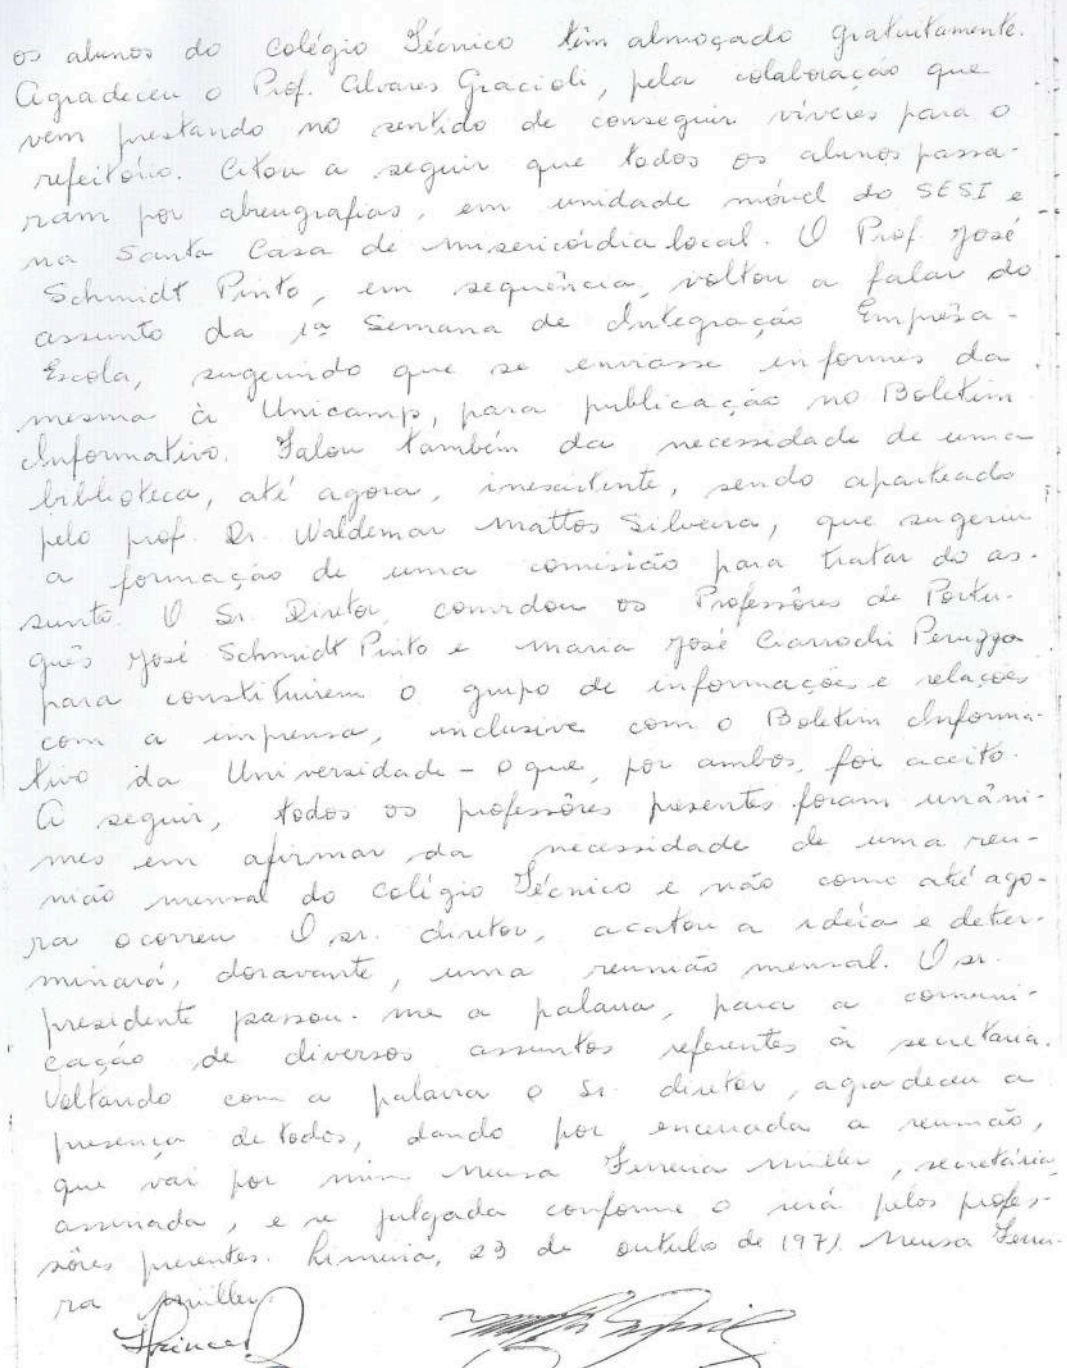 os alunos do Colégio Técnico têm almoçado gratuitamente.
Agradeceu o Prof. Alvares Gracioli, pela colaboração que
vem prestando no sentido de conseguir víveres para o
refeitório. Citou a seguir que todos os alunos passa-
ram por abreugrafias, em unidade móvel do SESI e
na Santa Casa de Misericórdia local. O Prof. José
Schmidt Pinto, em sequência, voltou a falar do
assunto da 1ª Semana de Integração Emprêsa-
Escola, sugerindo que se enviasse informes da
mesma à Unicamp, para publicação no Boletim
Informativo. Falou também da necessidade de uma
biblioteca, até agora, inexistente, sendo aparteado
pelo prof. Dr. Waldemar Mattos Silveira, que sugeriu
a formação de uma comissão para tratar do as-
sunto. O Sr. Diretor, convidou os Professôres de Portu-
guês José Schmidt Pinto e Maria José Ciarrochi Peruzza
para constituirem o grupo de informações e relações
com a imprensa, inclusive com o Boletim Informa-
tivo da Universidade - o que, por ambos, foi aceito.
A seguir, todos os professôres presentes foram unâni-
mes em afirmar da necessidade de uma reu-
nião mensal do Colégio Técnico e não como até ago-
ra ocorreu. O sr. diretor, acatou a idéia e deter-
minará, doravante, uma reunião mensal. O sr.
presidente passou-me a palavra, para a comuni-
cação de diversos assuntos referentes à secretaria.
Voltando com a palavra o sr. diretor, agradeceu a
presença de todos, dando por encerrada a reunião,
que vai por mim Neusa Ferreira Miller, secretária,
assinada, e se julgada conforme o será pelos profes-
sôres presentes. Limeira, 23 de outubro de 1971. Neusa Ferrei-
ra Miller